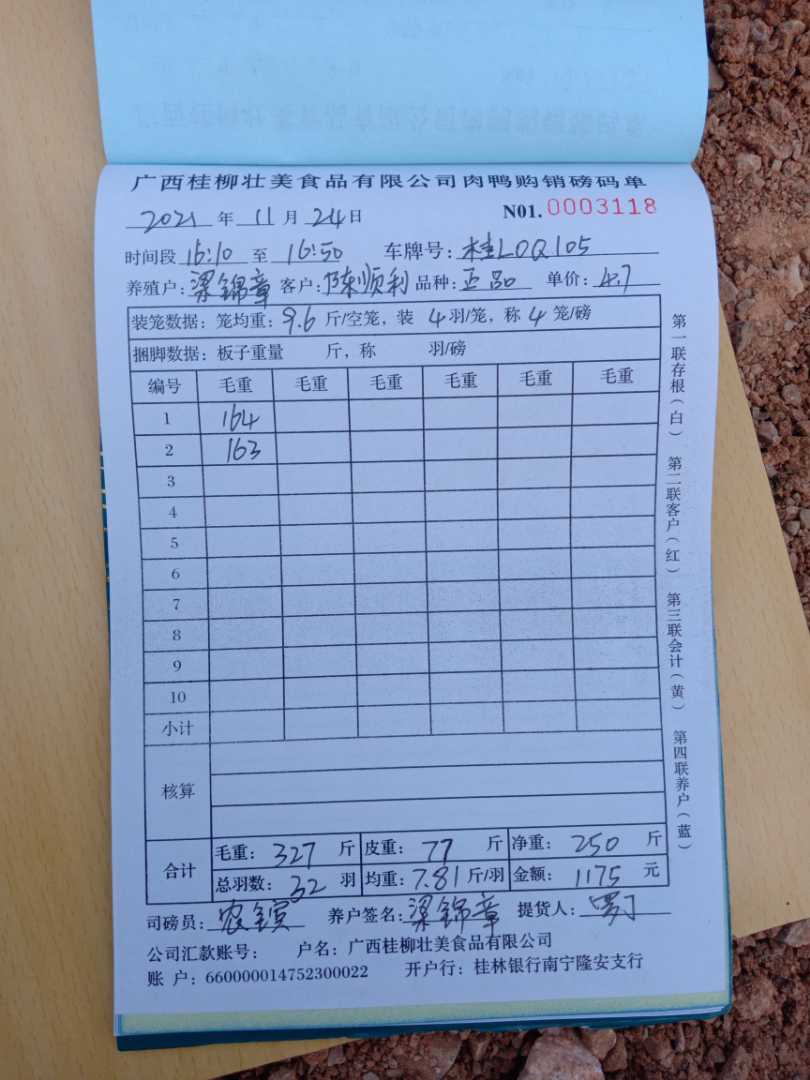 广西桂柳壮美食品有限公司肉鸭购销磅码单
2021 年 11 月 24 日 N01. 0003118
时间段 16:10 至 16:50 车牌号: 桂LOQ105
养殖户: 梁锦章 客户: 陈顺利 品种: 正品 单价: 4.7
装笼数据: 笼均重: 9.6 斤/空笼, 装 4 羽/笼, 称 4 笼/磅
捆脚数据: 板子重量 斤, 称 羽/磅
编号 毛重 毛重 毛重 毛重 毛重 毛重
1 164
2 163
3
4
5
6
7
8
9
10
小计
核算
合计 毛重: 327 斤 皮重: 77 斤 净重: 250 斤
总羽数: 32 羽 均重: 7.81 斤/羽 金额: 1175 元
司磅员: 农 养户签名: 梁锦章 提货人:
公司汇款账号: 户名: 广西桂柳壮美食品有限公司
账 户: 660000014752300022 开户行: 桂林银行南宁隆安支行
第一联存根(白) 第二联客户(红) 第三联会计(黄) 第四联养户(蓝)